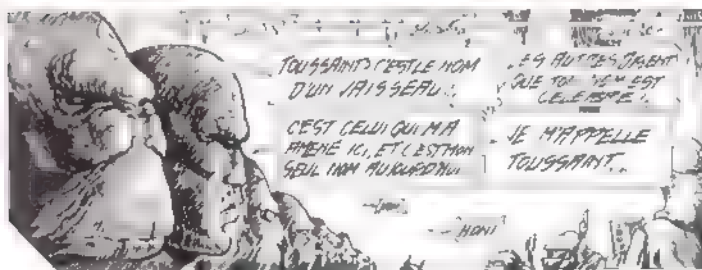 TOUSSAINT? C'EST LE NOM
D'UN VAISSEAU...
C'EST CELUI QUI M'A
AMENÉ ICI, ET C'EST MON
SEUL NOM AUJOURD'HUI.
LES AUTRES DISENT
QUE TON NOM EST
CELEBRE...
JE M'APPELLE
TOUSSAINT...
HONI